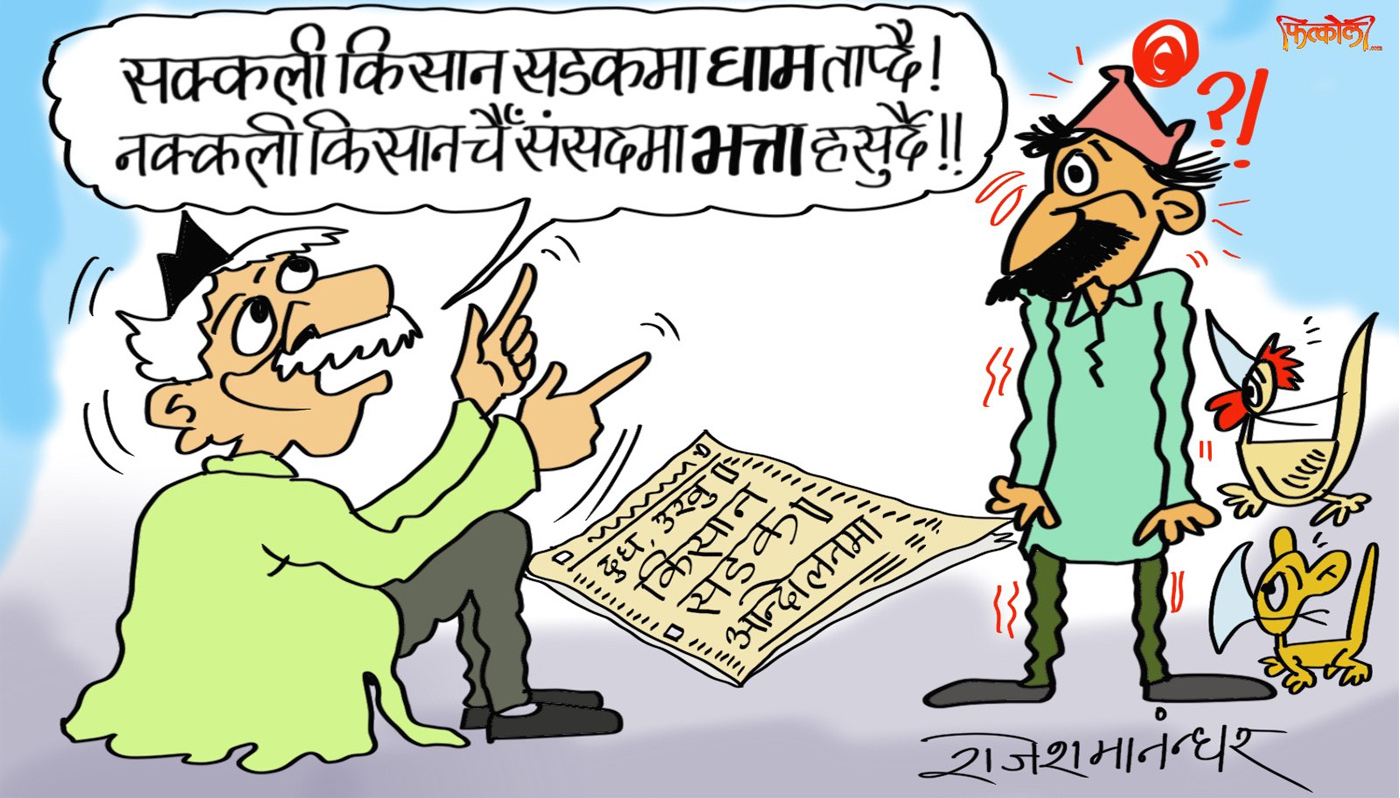 सक्कली किसान सडकमा घाम ताप्दै!
नक्कली किसान चैँ संसदमा भत्ता हसुर्दै!!
फित्कौली.com
?!
दुध, उखु
किसान
सडक
आन्दोलनमा
राजेश मानन्धर